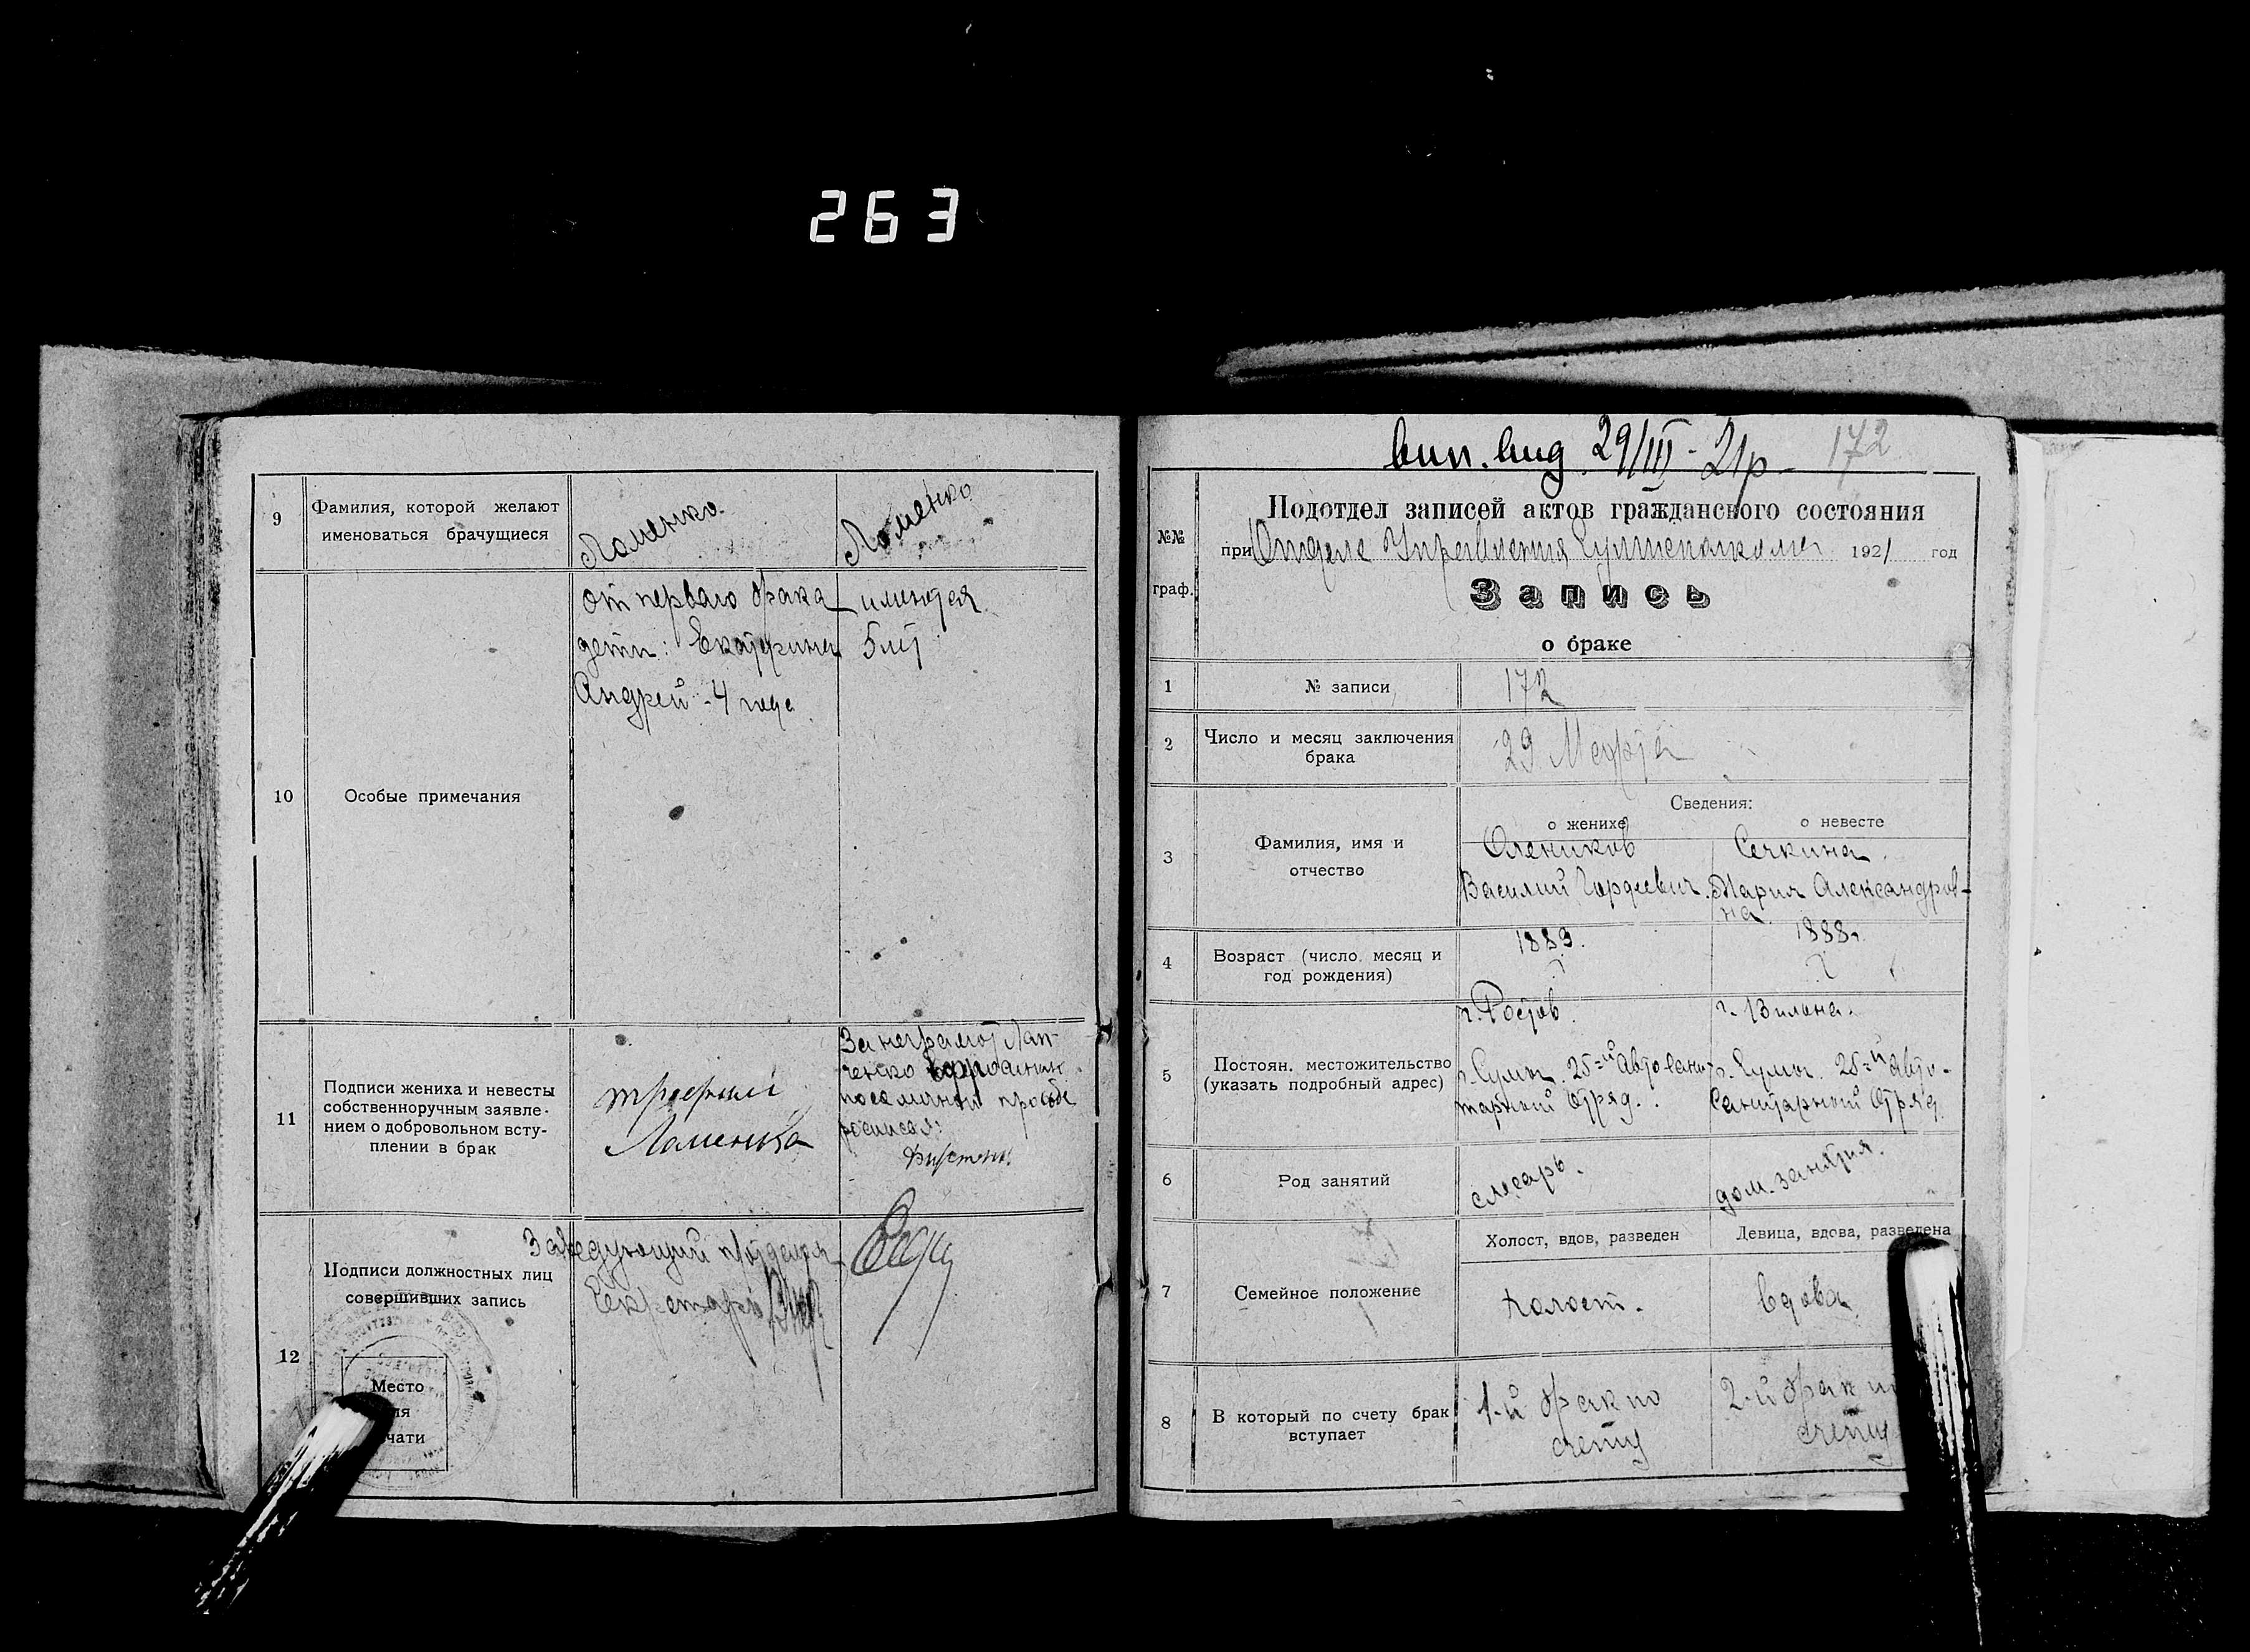 263
9
Фамилия, которой желают
именоваться брачущиеся
Ломенко.
Ломенко
10
Особые примечания
от перваго брака имеются
дети: Екатерина 5 лет
Андрей - 4 года
11
Подписи жениха и невесты
собственноручным заявле-
нием о добровольном всту-
плении в брак
Ломенко
За неграмот
просьбе
12
Подписи должностных лиц
совершивших запись
Заведующий
Секретарь
Место
чати
вип. вид. 29/III - 21р - 172
№№
граф.
Подотдел записей актов гражданского состояния
при Отделе Управления 1921 год
Запись
о браке
1
№ записи
172
2
Число и месяц заключения
брака
29 Марта
3
Фамилия, имя и
отчество
Сведения:
о женихе
о невесте
Олеников
Василий Гордеевич.
Сечкина.
Мария Александров-
на
4
Возраст (число, месяц и
год рождения)
1889.
?
1888 г.
?
5
Постоян. местожительство
(указать подробный адрес)
г. Ростов.
г. Сумы. 25=й Авто Сани-
тарный Отряд.
г. Вильна.
г. Сумы. 25=й Авто-
Санитарный Отряд.
6
Род занятий
слесарь.
дом. занятия.
7
Семейное положение
Холост, вдов, разведен
Девица, вдова, разведена
холост.
вдова
8
В который по счету брак
вступает
1-й брак по
счету
2-й брак
счету